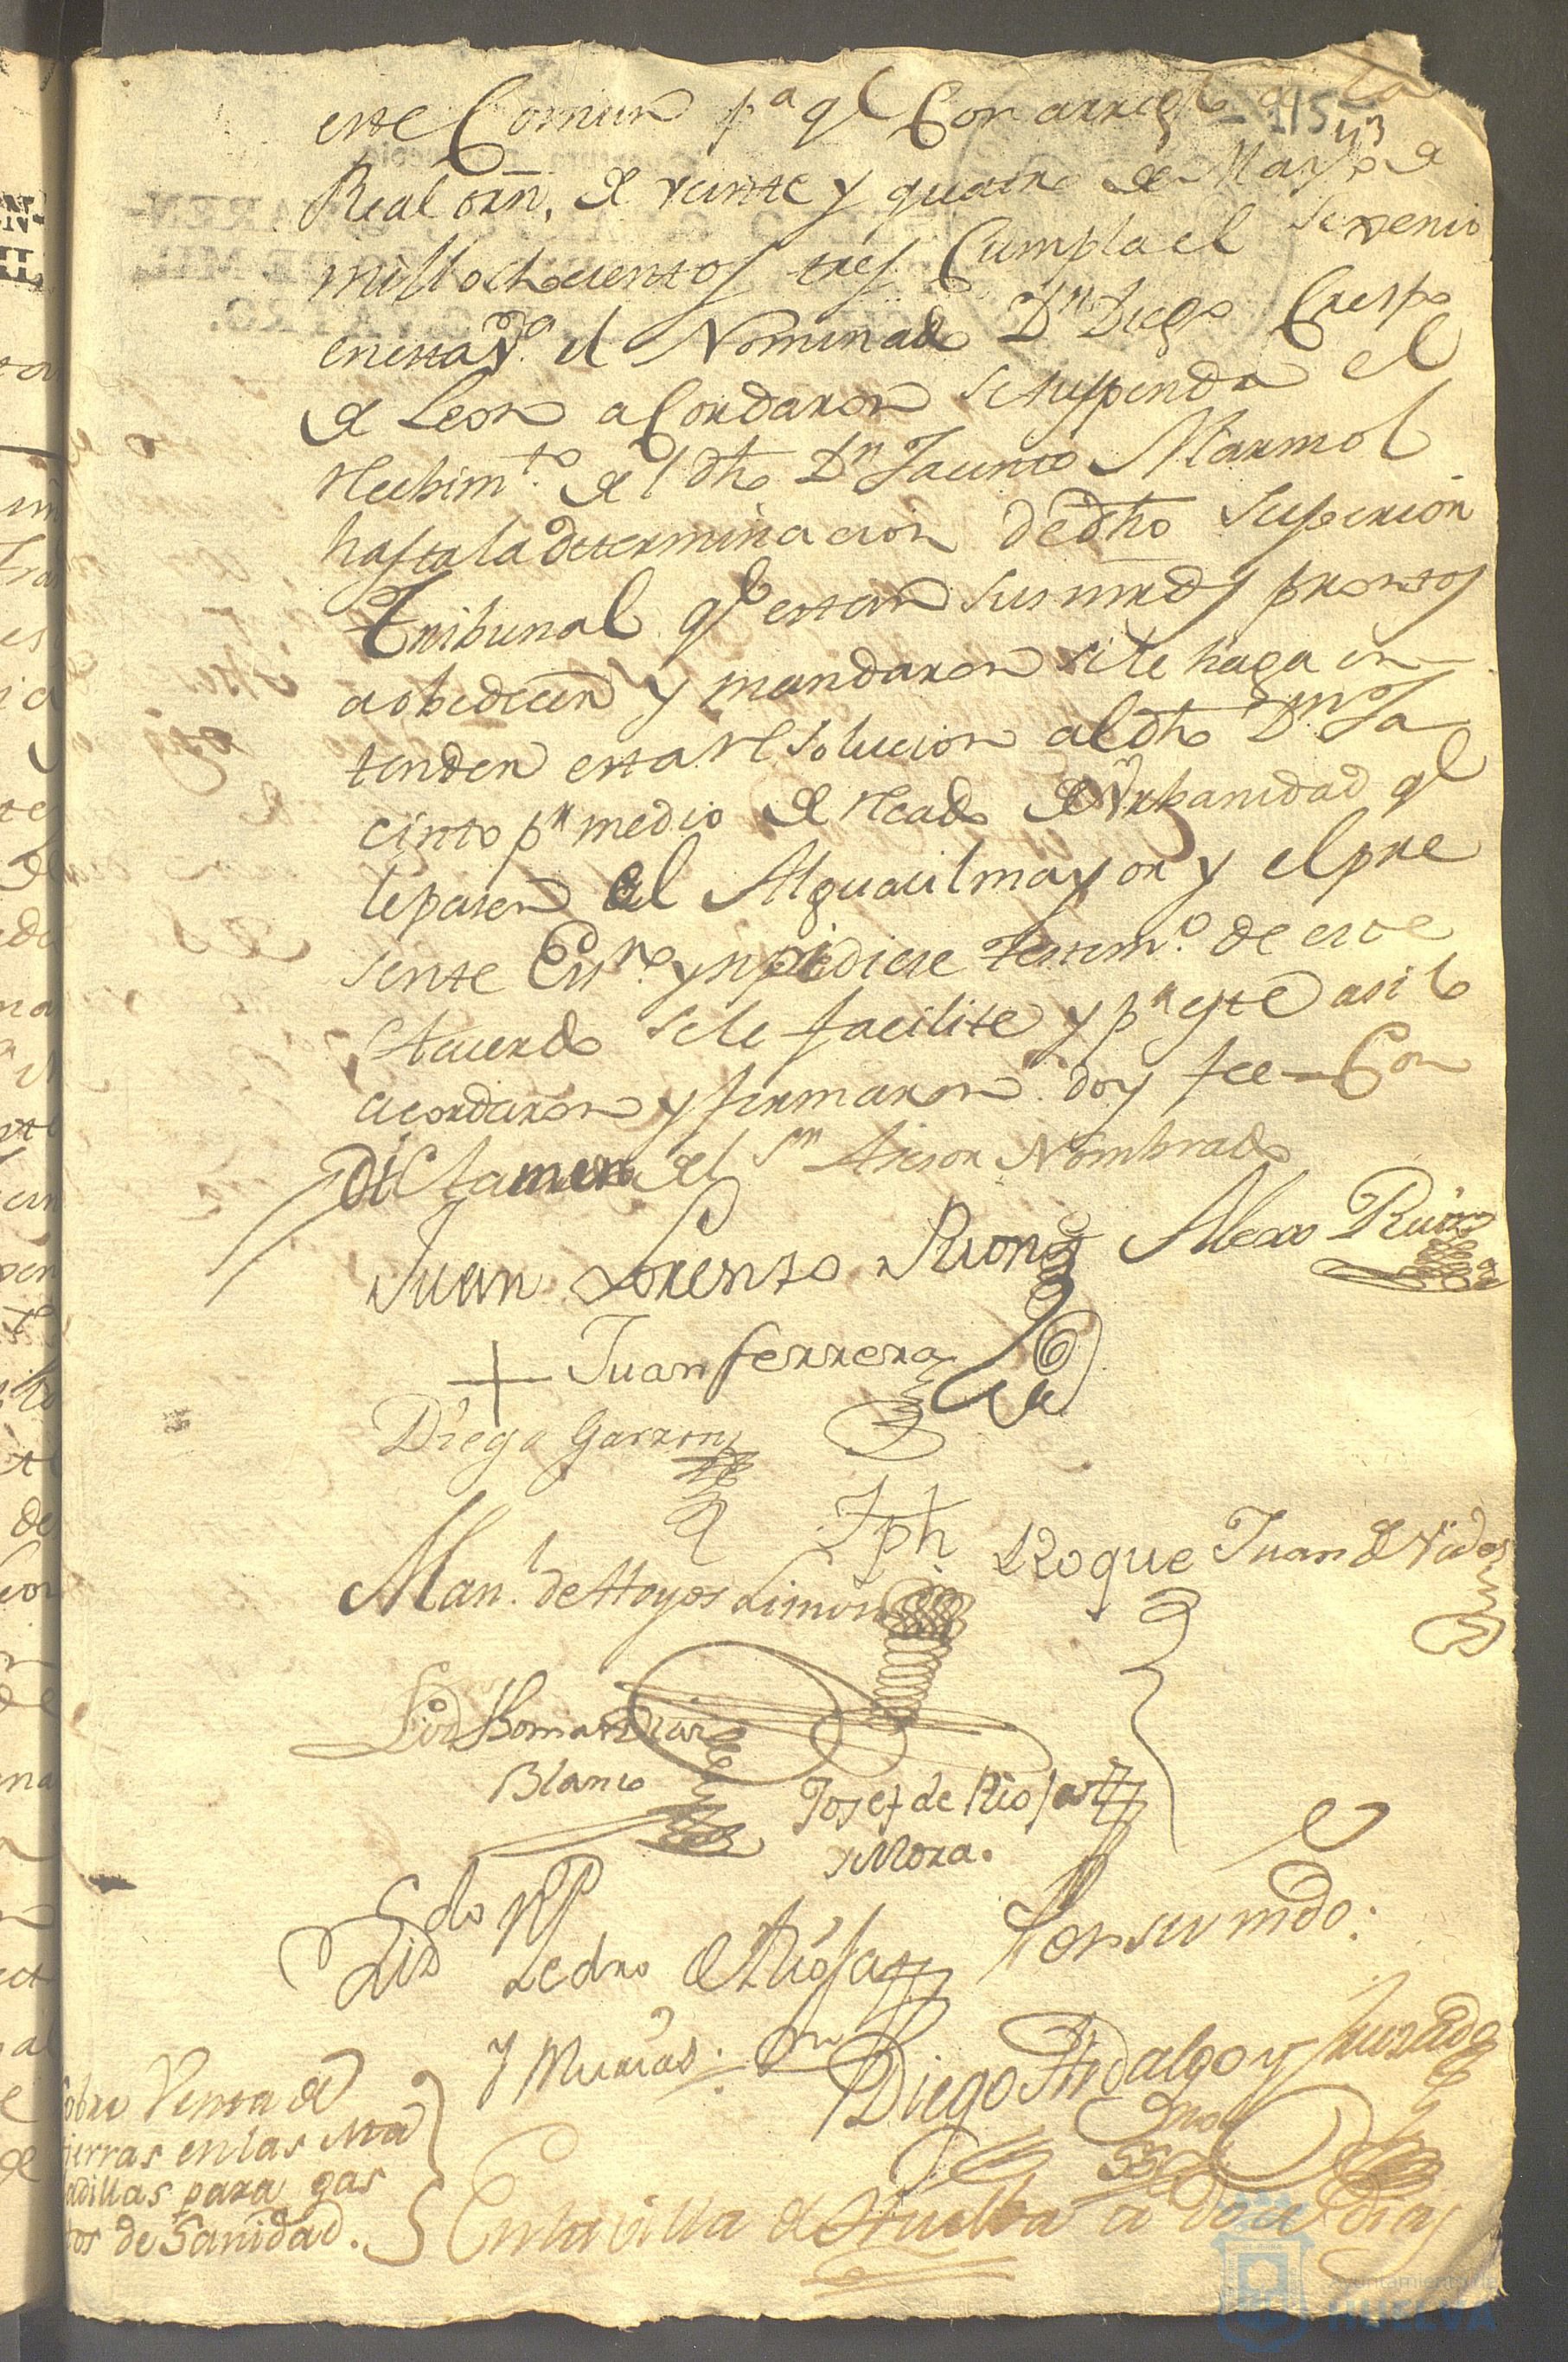 este Comun p.a q.e Con arreglo a la
115
Real orn. de veinte y quatro de Mayo de
mill ochocientos tres Cumpla el servicio
en esta V.a el Nominado D.n Diego Crespo
de Leon acordaron se suspenda el
Recibim.to del dho D.n Jacinto Marmol
hasta la determinacion de dho Superior
Tribunal q.e estan sus mrds prontos
a obedecer y mandaron se le haga en
tender esta resolucion al dho D.n Ja
cinto p.r medio de Recado de Urbanidad q.e
le pasen el Alguacil mayor y el pre
sente Ess.no y si pidiese testim.o de este
Acuerdo se le facilite y p.r este asi lo
acordaron y firmaron doy fee = Con
dictamen del S.r Asesor Nombrado
Juan Lorenzo Rionz
Alexo Ruiz
+ Juan ferrera
Diego Garzon
Jph Roque
Juan de Vides
Man.l de Hoyos Limon
Lizdo Thomas Diaz
Blanco
Josef de Rio fasz
y Mora.
Lizdo
Pedro de Rio fasz
y Murias.
Diego Hidalgo y Hurtado
Sobre Venta de
tierras en las Ma
adillas para gas
tos de Sanidad.
En la villa de Huelva a doce dias
Ayuntamiento de
HUELVA